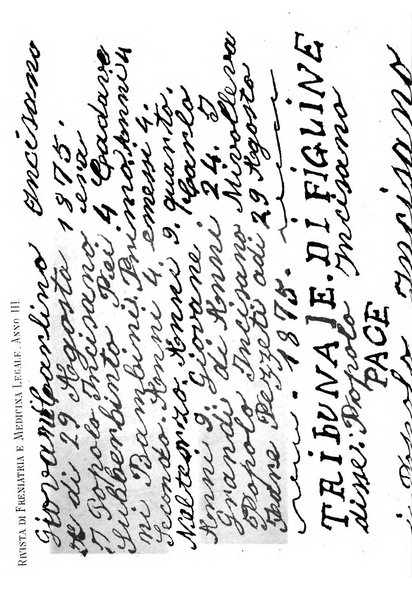 RIVISTA DI FRENIATRIA E MEDICINA LEGALE. ANNO III.
Giovanni Carlino Incisano
di 29 Agosto 1875.
Popolo Incisano. era
Piei 4 Cadave
ni Bambini. Primo Anni 4
Secondo. Anni 4. emessi 4.
Nel terzo. Anni 9. quarto.
Anni 9. Giovane Carlo
Grandi di Anni 24. 5
Popolo Incisano Mi voleva
Fedre Pezzeti adi 29 Agosto
1875.
TRIBUNAJE. DI FIGLINE
disse: Popolo Incisano
PACE
Incisano